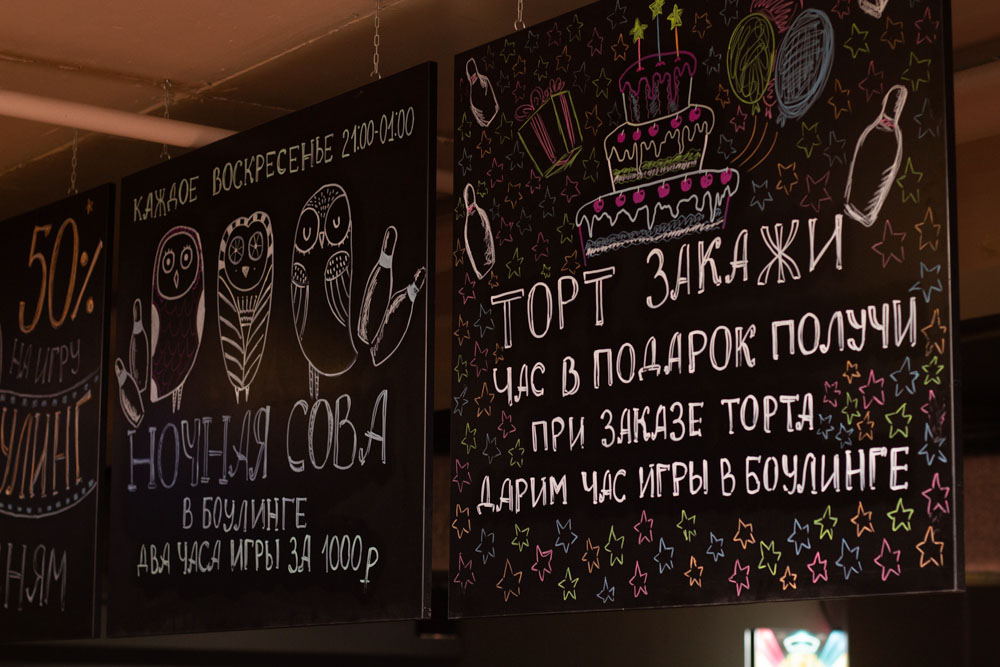 50%
НА ИГРУ
КАЖДОЕ ВОСКРЕСЕНЬЕ 21:00-01:00
НОЧНАЯ СОВА
В БОУЛИНГЕ
ДВА ЧАСА ИГРЫ ЗА 1000р
ТОРТ ЗАКАЖИ
ЧАС В ПОДАРОК ПОЛУЧИ
ПРИ ЗАКАЗЕ ТОРТА
ДАРИМ ЧАС ИГРЫ В БОУЛИНГЕ